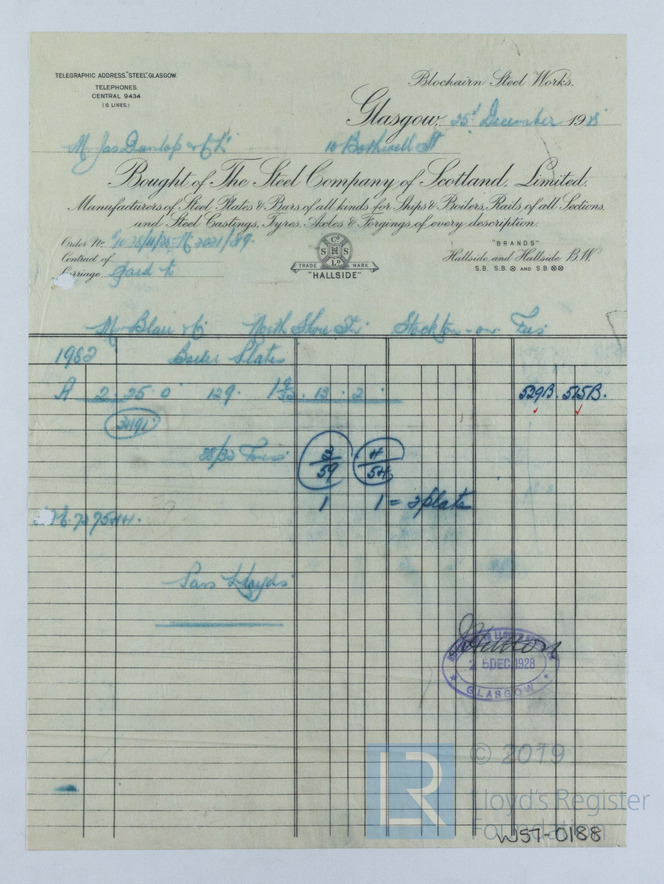 TELEGRAPHIC ADDRESS, "STEEL", GLASGOW.
TELEPHONES.
CENTRAL 9434
(6 LINES.)
Blochairn Steel Works.
Glasgow, 25th December 1928
M Jas Dunlop & Co Ld
10 Bothwell St
Bought of The Steel Company of Scotland, Limited.
Manufacturers of Steel, Plates & Bars of all kinds for Ships & Boilers, Rails of all Sections,
and Steel Castings, Tyres, Axles & Forgings of every description.
Order No.
Contract of
Carriage, paid to
Co
S H S
Ld
TRADE MARK
"HALLSIDE"
"BRANDS"
Hallside and Hallside B.W
S.B. S.B. AND S.B.
M Blair & Co North Shore St Stockton-on-Tees
1982 Boiler Plates
A 2. 25. 0 129. 1 9/32. 13. 2. 529B. 515B.
28/32 Tons 3/59 4/54
1 1 = 2 plates
Pass Lloyds
J Hutton
25 DEC 1928
GLASGOW
LR
© 2019
Lloyd's Register
Foundation
W57-0188